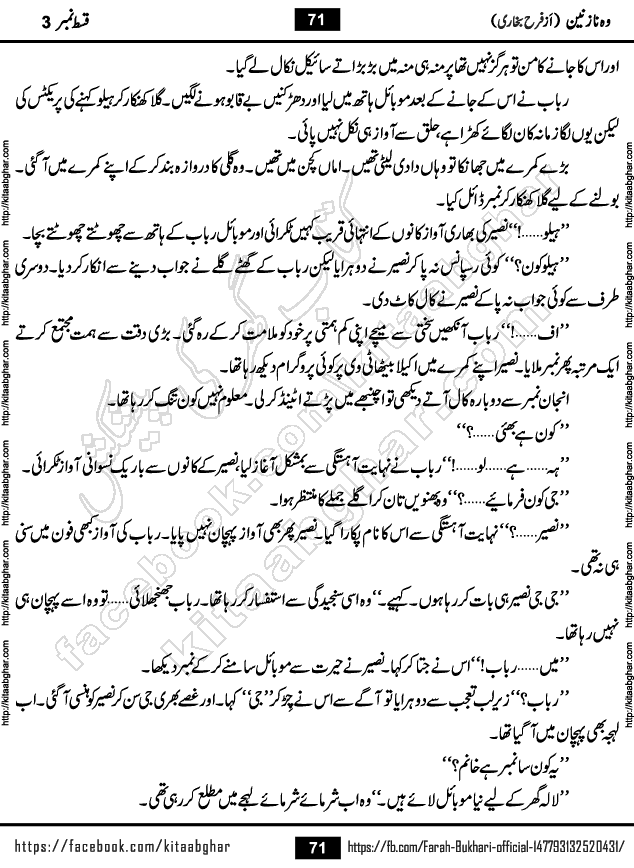 وہ نازنین (از فرح بخاری) 71 قسط نمبر 3
اور اس کا جانے کا من تو ہرگز نہیں تھا پر منہ ہی منہ میں بڑبڑاتے سائیکل نکال لے گیا۔
رباب نے اس کے جانے کے بعد موبائل ہاتھ میں لیا اور دھڑکنیں بے قابو ہونے لگیں۔ گلا کھنکار کر ہیلو کہنے کی پریکٹس کی
لیکن یوں لگا زمانہ کان لگائے کھڑا ہے، حلق سے آواز ہی نکل نہیں پائی۔
بڑے کمرے میں جھانکا تو وہاں دادی لیٹی تھیں۔ اماں کچن میں تھیں۔ وہ گلی کا دروازہ بند کر کے اپنے کمرے میں آ گئی۔
بولنے کے لیے گلا کھنکار کر نمبر ڈائل کیا۔
’’ہیلو......!‘‘ نصیر کی بھاری آواز کانوں کے انتہائی قریب کہیں ٹکرائی اور موبائل رباب کے ہاتھ سے چھوٹتے چھوٹتے بچا۔
’’ہیلو کون؟‘‘ کوئی رسپانس نہ پا کر نصیر نے دوہرایا لیکن رباب کے گھٹے گلے نے جواب دینے سے انکار کر دیا۔ دوسری
طرف سے کوئی جواب نہ پا کے نصیر نے کال کاٹ دی۔
’’اف......!‘‘ رباب آنکھیں سختی سے میچے اپنی کم ہمتی پر خود کو ملامت کر کے رہ گئی۔ بڑی دقت سے ہمت مجتمع کرتے
ایک مرتبہ پھر نمبر ملایا۔ نصیر اپنے کمرے میں اکیلا بیٹھا ٹی وی پر کوئی پروگرام دیکھ رہا تھا۔
انجان نمبر سے دوبارہ کال آتے دیکھی تو اچنبھے میں پڑتے اٹینڈ کر لی۔ معلوم نہیں کون تنگ کر رہا تھا۔
’’کون ہے بھئی......؟‘‘
’’ہہ...... ہے...... لو......!‘‘ رباب نے نہایت آہستگی سے بمشکل آغاز لیا، نصیر کے کانوں سے باریک نسوانی آواز ٹکرائی۔
’’جی کون فرمائیے......؟‘‘ وہ بھنویں تان کر اگلے جملے کا منتظر ہوا۔
’’نصیر......؟‘‘ نہایت آہستگی سے اس کا نام پکارا گیا۔ نصیر پھر بھی آواز پہچان نہیں پایا۔ رباب کی آواز کبھی فون میں سنی
ہی نہ تھی۔
’’جی جی نصیر ہی بات کر رہا ہوں۔ کہیے۔‘‘ وہ اسی سنجیدگی سے استفسار کر رہا تھا۔ رباب جھنجھلائی...... تو وہ اسے پہچان ہی
نہیں رہا تھا۔
’’میں...... رباب!‘‘ اس نے جتا کر کہا۔ نصیر نے حیرت سے موبائل سامنے کر کے نمبر دیکھا۔
’’رباب؟‘‘ زیر لب تعجب سے دوہرایا تو آگے سے اس نے چڑ کر ’’جی‘‘ کہا۔ اور غصے بھری جی سن کر نصیر کو ہنسی آ گئی۔ اب
لہجہ بھی پہچان میں آ گیا تھا۔
’’یہ کون سا نمبر ہے خانم؟‘‘
’’لالہ گھر کے لیے نیا موبائل لائے ہیں۔‘‘ وہ اب شرمائے شرمائے لہجے میں مطلع کر رہی تھی۔
https://facebook.com/kitaabghar 71 https://fb.com/Farah-Bukhari-official-147793132520431/
http://kitaabghar.com http://kitaabghar.com http://kitaabghar.com http://kitaabghar.com http://kitaabghar.com http://kitaabghar.com
http://kitaabghar.com http://kitaabghar.com http://kitaabghar.com http://kitaabghar.com http://kitaabghar.com http://kitaabghar.com
کتاب گھر کی پیشکش
facebook.com/kitaabghar
kitaabghar.com